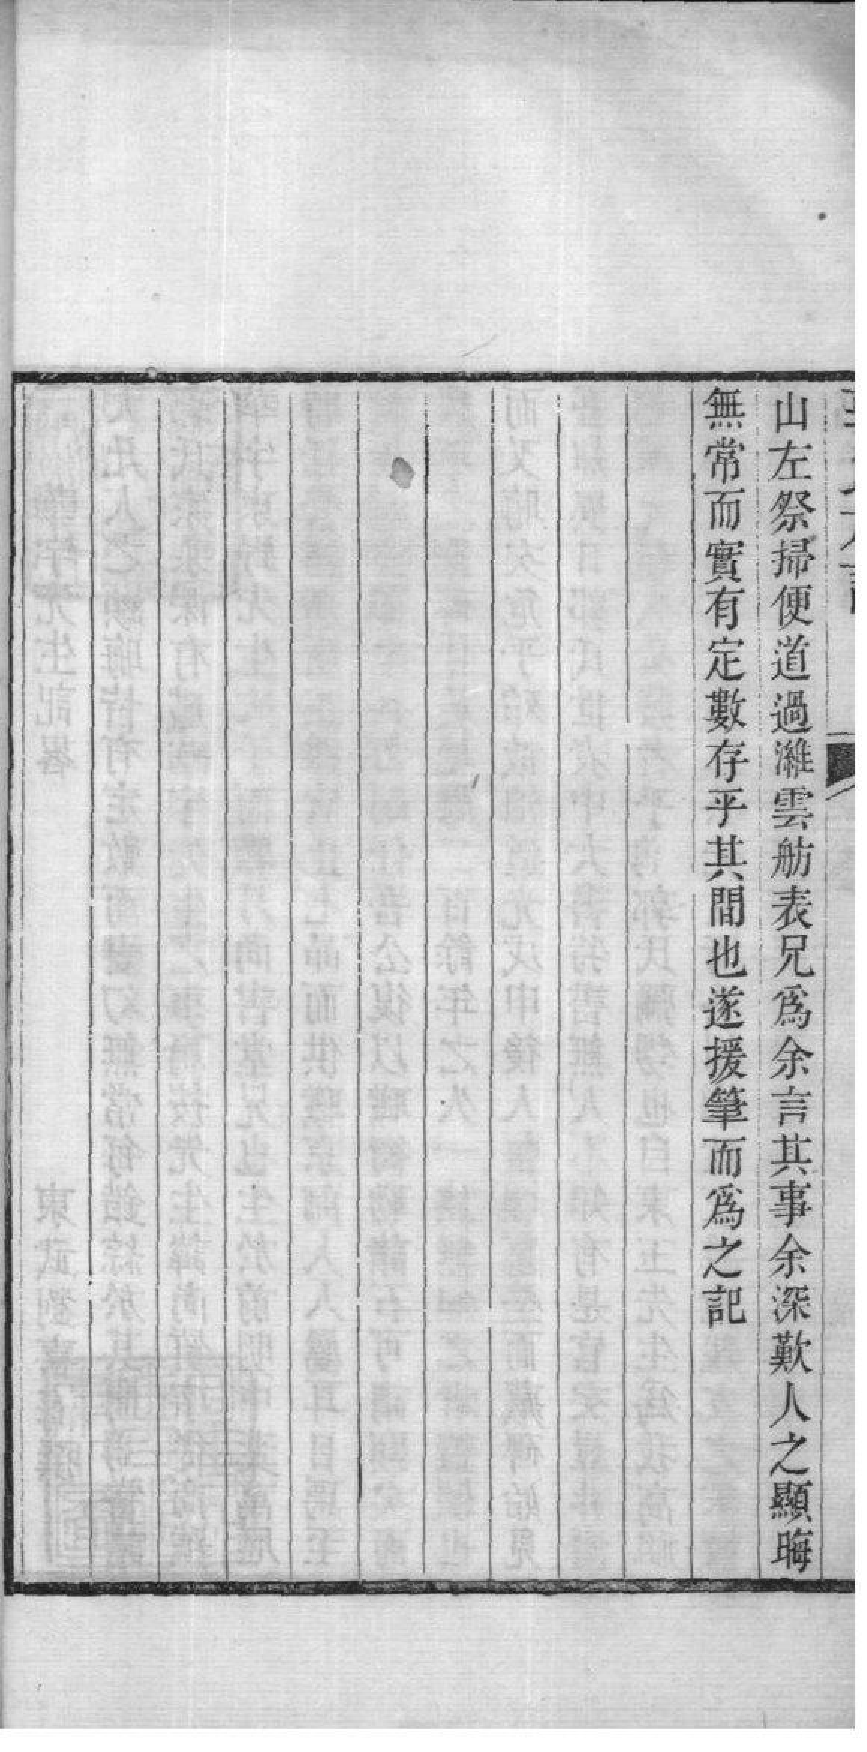 山左祭掃便道過濰雲舫表兄爲余言其事余深歎人之顯晦
無常而實有定數存乎其間也遂援筆而爲之記